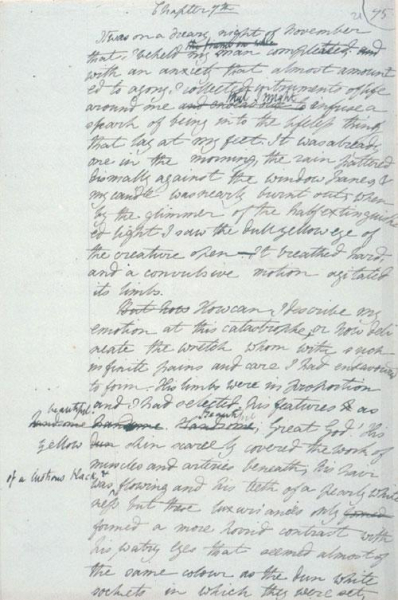 Chapter 7th
75
It was on a dreary night of November
that I beheld my man compleated and
with an anxiety that almost amount
ed to agony I collected instruments of life
around me that I might infuse a
spark of being into the lifeless thing
that lay at my feet. It was already
one in the morning, the rain pattered
dismally against the window panes, &
my candle was nearly burnt out, when
by the glimmer of the half extinguish
ed light I saw the dull yellow eye of
the creature open—It breathed hard
and a convulsive motion agitated
its limbs.
But how How can I describe my
emotion at this catastrophe, or how deli
neate the wretch whom with such
infinite pains and care I had endeavoured
to form. His limbs were in proportion
and I had selected his features as
beautiful
handsome handsome. Beautiful; Great God! His
yellow dun skin scarcely covered the work of
muscles and arteries beneath; his hair
of a lustrous black &
was flowing and his teeth of a pearly white
ness but these luxuriances only formed
formed a more horrid contrast with
his watry eyes that seemed almost of
the same colour as the dun white
sockets in which they were set,